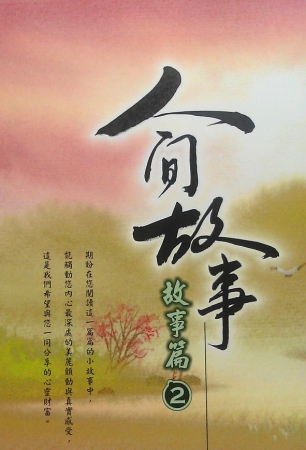 人間故事
故事篇2
期盼在您閱讀這一篇篇的小故事中，
能觸動您內心最深處的美麗顫動與真實感受，
這是我們希望與您一同分享的心靈財富。